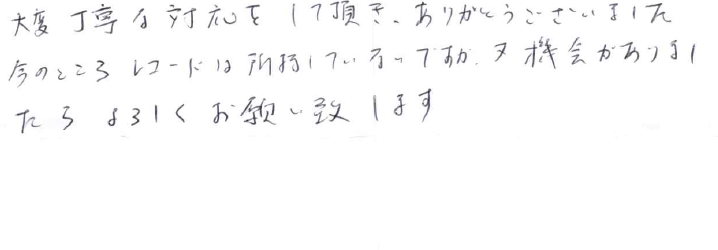 大変丁寧な対応をして頂き、ありがとうございました
今のところレコードは所持していないですが、又機会がありまし
たらよろしくお願い致します